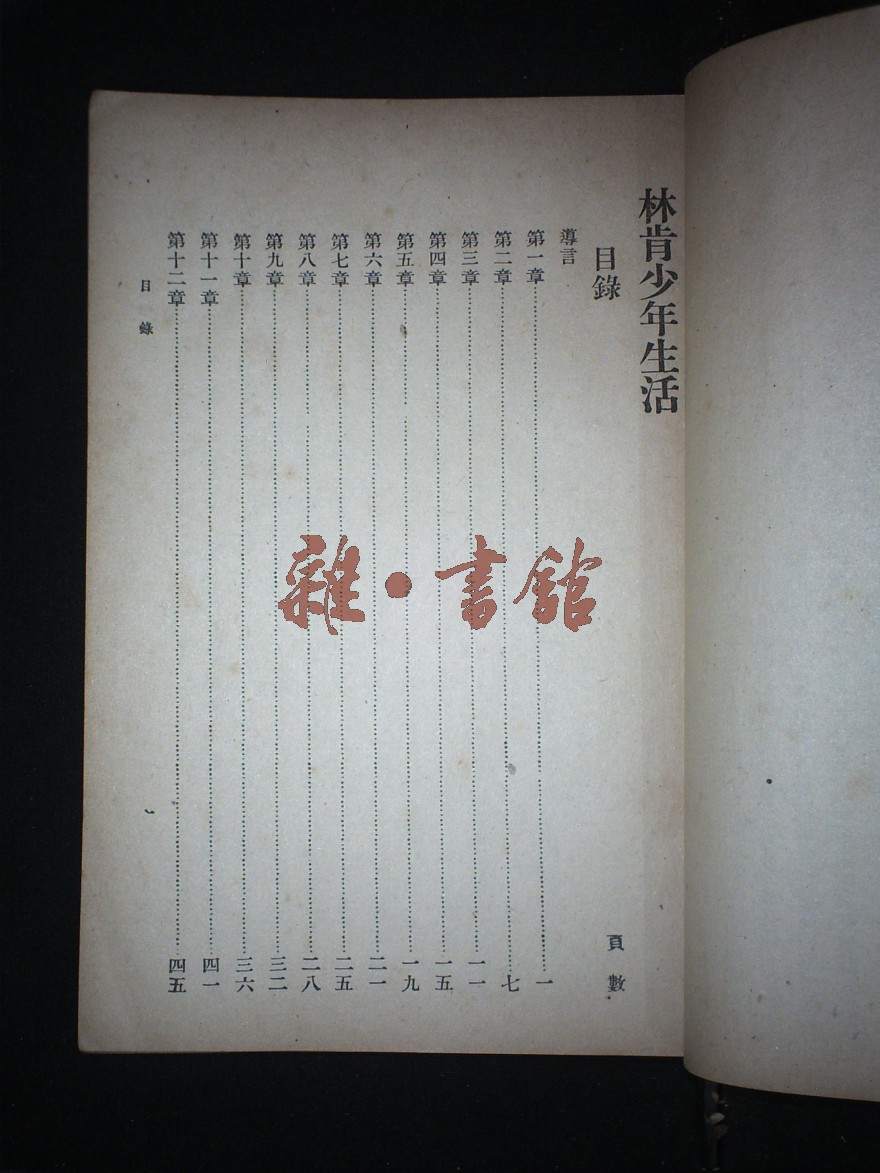 林肯少年生活
目錄
頁數
導言
第一章……一
第二章……七
第三章……一一
第四章……一五
第五章……一九
第六章……二一
第七章……二五
第八章……二八
第九章……三二
第十章……三六
第十一章……四一
第十二章……四五
目錄
一
雜·書館